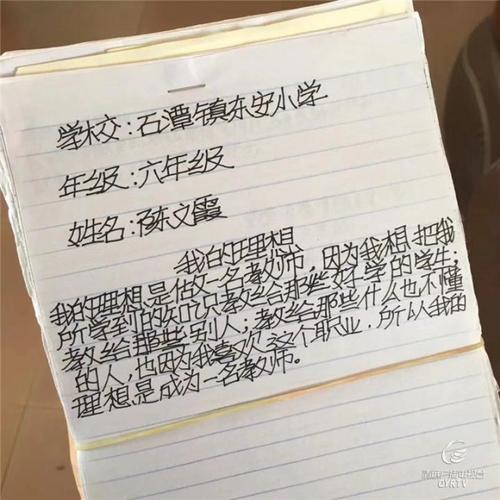 学校:石潭镇东安小学
年级:六年级
姓名:陈文霞
我的理想
我的理想是做一名教师,因为我想把我
所学到的知识教给那些好学的学生;
教给那些别人;教给那些什么也不懂
的人,也因为我喜欢这个职业,所以我的
理想是成为一名教师。
QYRTV